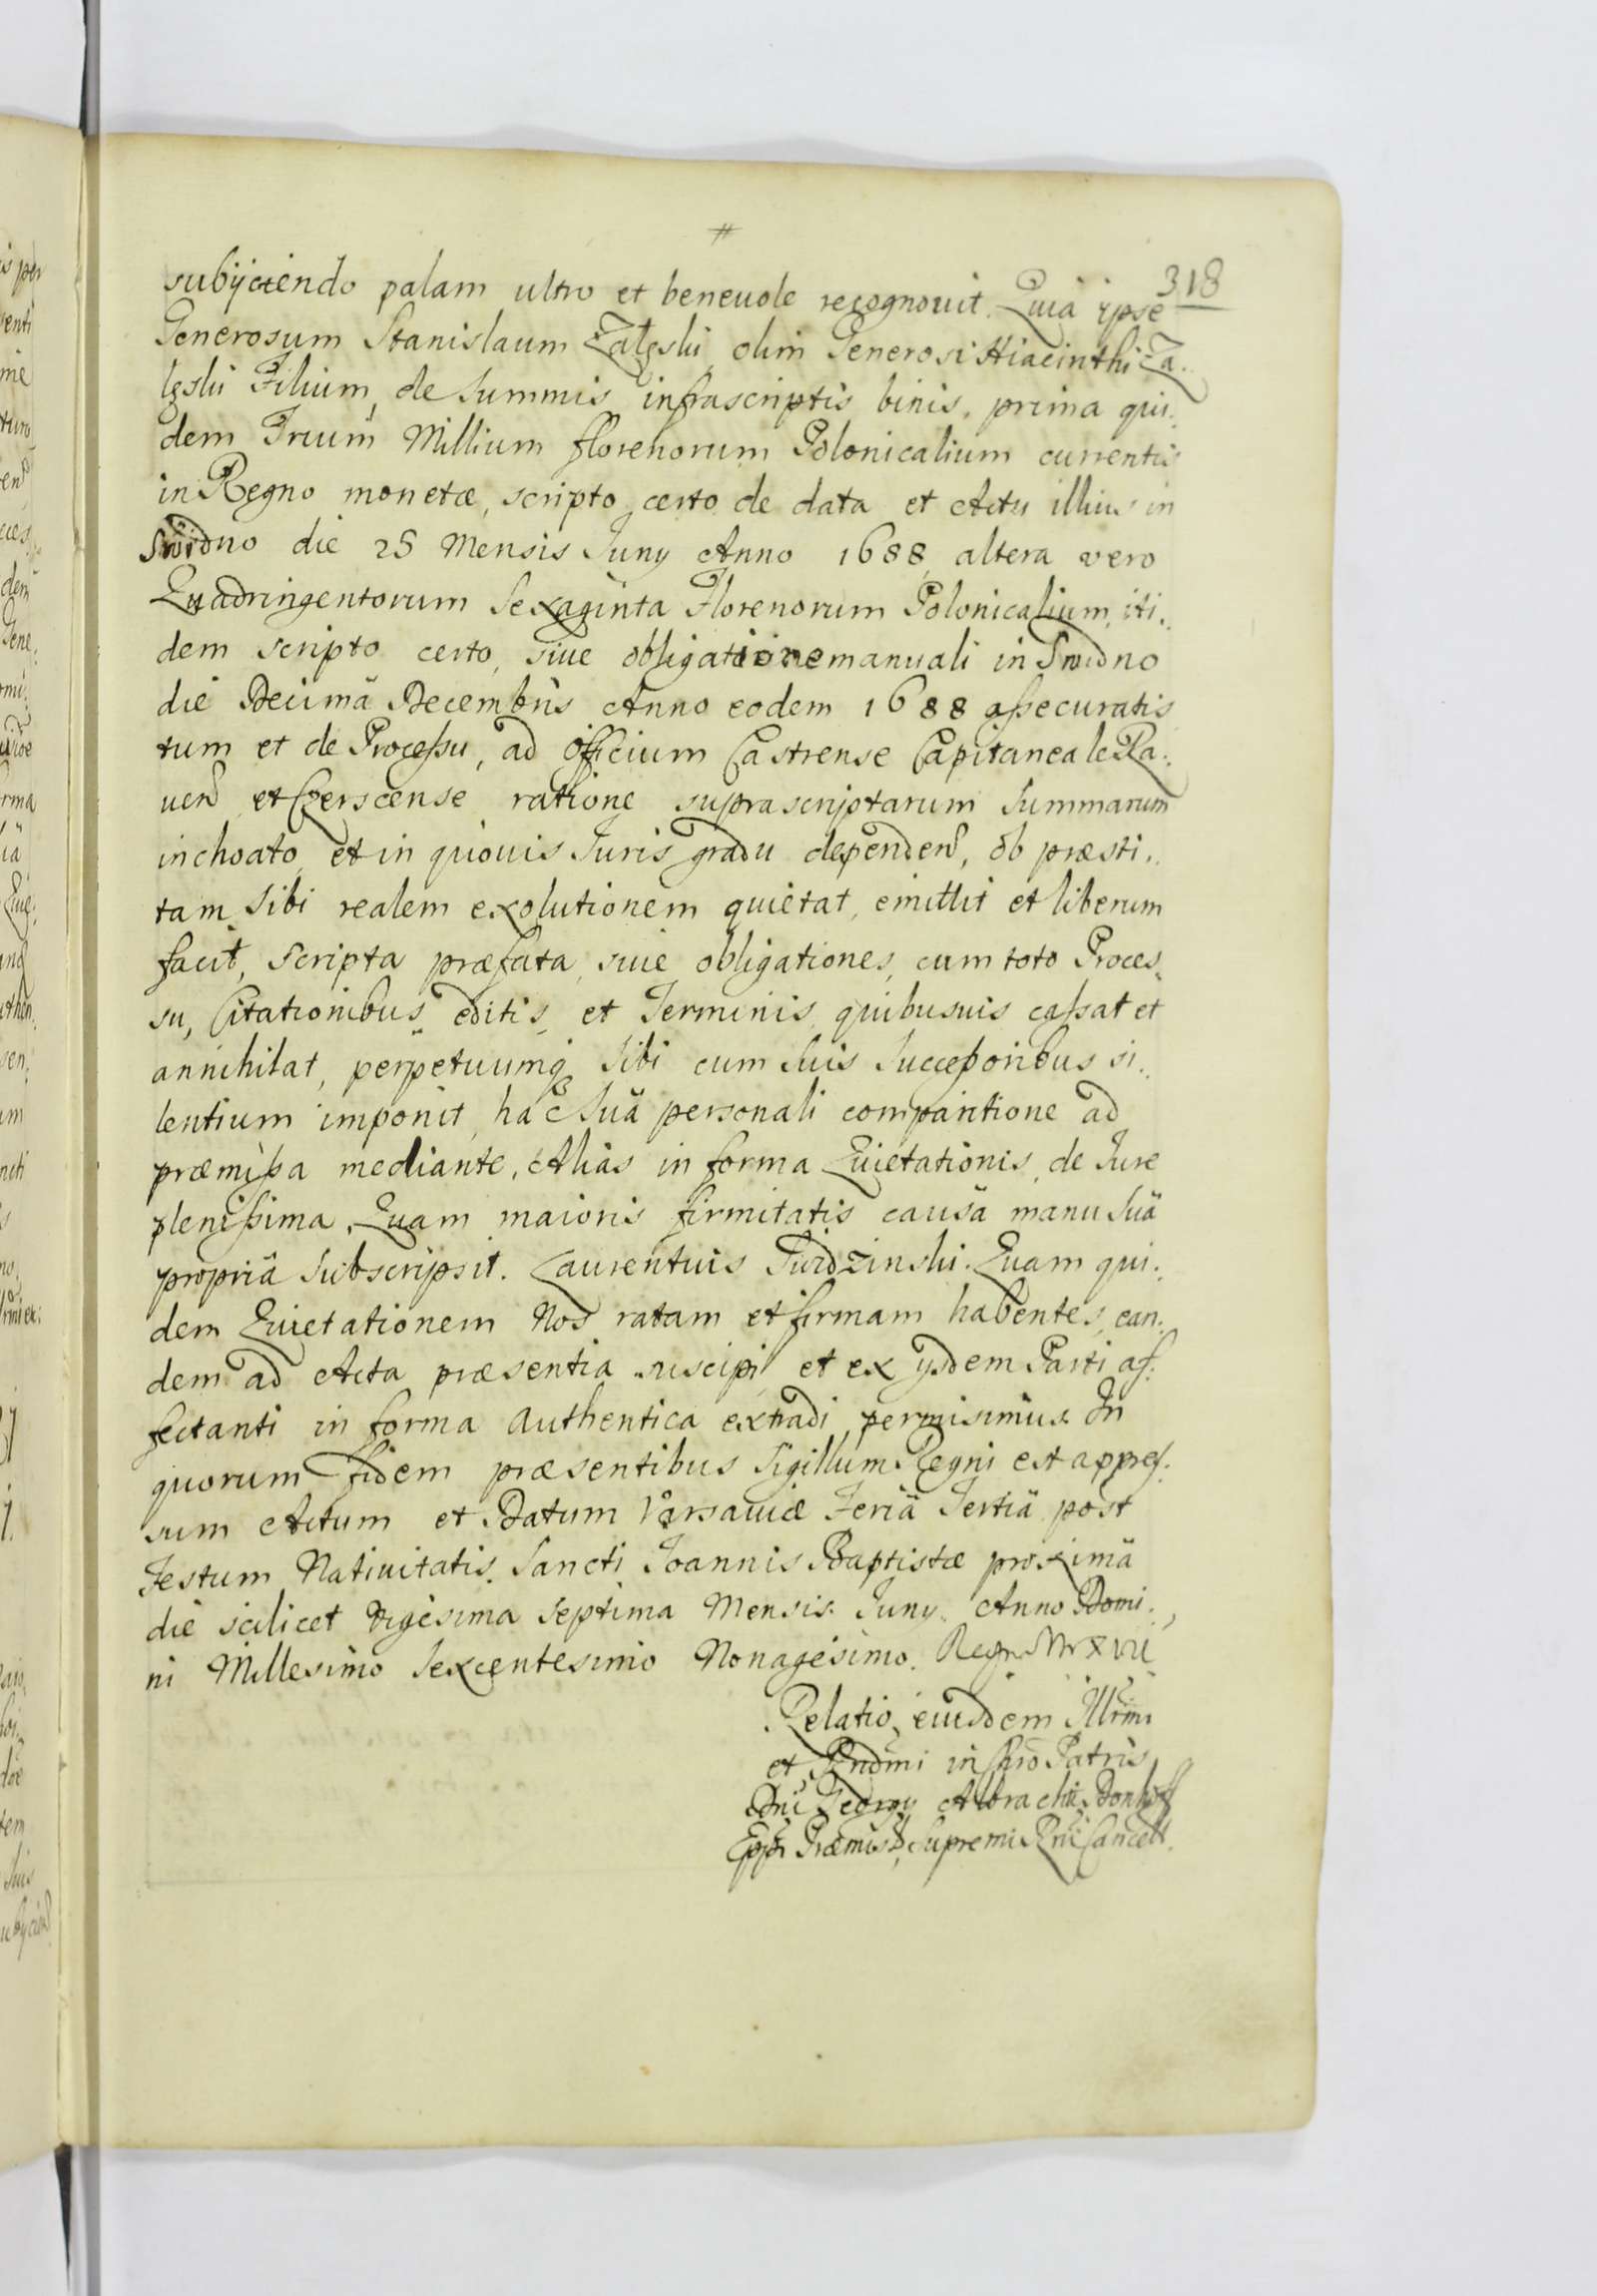 318
subijciendo palam ultro et beneuole recognouit. Quia ipse
Generosum Stanislaum Zaleski olim Generosi Hiacinthi Za.
leski Filium, de Summis infrascriptis binis, prima qui.
dem Trium Millium florenorum Polonicalium currentis
in Regno monetæ, scripto certo de data et Actu illius in
Swidno die 25 Mensis Juny Anno 1688 altera vero
Quadringentorum Sexaginta Florenorum Polonicalium, iti.
dem scripto certo, siue obligatione manuali in Swidno
die Decimâ Decembris Anno eodem 1688 assecuratis
tum et de Processu, ad Officium Castrense Capitaneale Ra.
uen et Czerscense ratione suprascriptarum Summarum
inchoato, et in quouis Juris gradu dependen, ob præsti.
tam Sibi realem exolutionem quietat, emittit et liberum
facit, scripta præfata, siue obligationes, cum toto Proces
su, Citationibus editis, et Terminis quibusuis cassat et
annihilat, perpetuumq Sibi cum Suis Successoribus si.
lentium imponit, hac Suâ personali comparitione ad
præmissa mediante. Alias in forma Quietationis, de Jure
plenissima, Quam maioris firmitatis causâ manu Suâ
propriâ Subscripsit. Laurentius Swidzinski. Quam qui.
dem Quietationem Nos ratam et firmam habentes, ean.
dem ad Acta præsentia suscipi et ex ysdem Parti af.
fectanti in forma Authentica extradi permisimus. In
quorum fidem præsentibus Sigillum Regni est appres.
sum Actum et Datum Varsauiæ Feriâ Tertiâ post
Festum Natiuitatis Sancti Joannis Baptistæ proximâ
die scilicet Vigesima Septima Mensis Juny Anno Domi.
ni Millesimo Sexcentesimo Nonagesimo. Regni Nri XVII
Relatio eiusdem Illrmi
et Rndmi in Chrō Patris
Dni Georgy Albrachti Donhoff
Eppi Præmisl, Supremi Rni Cancell.